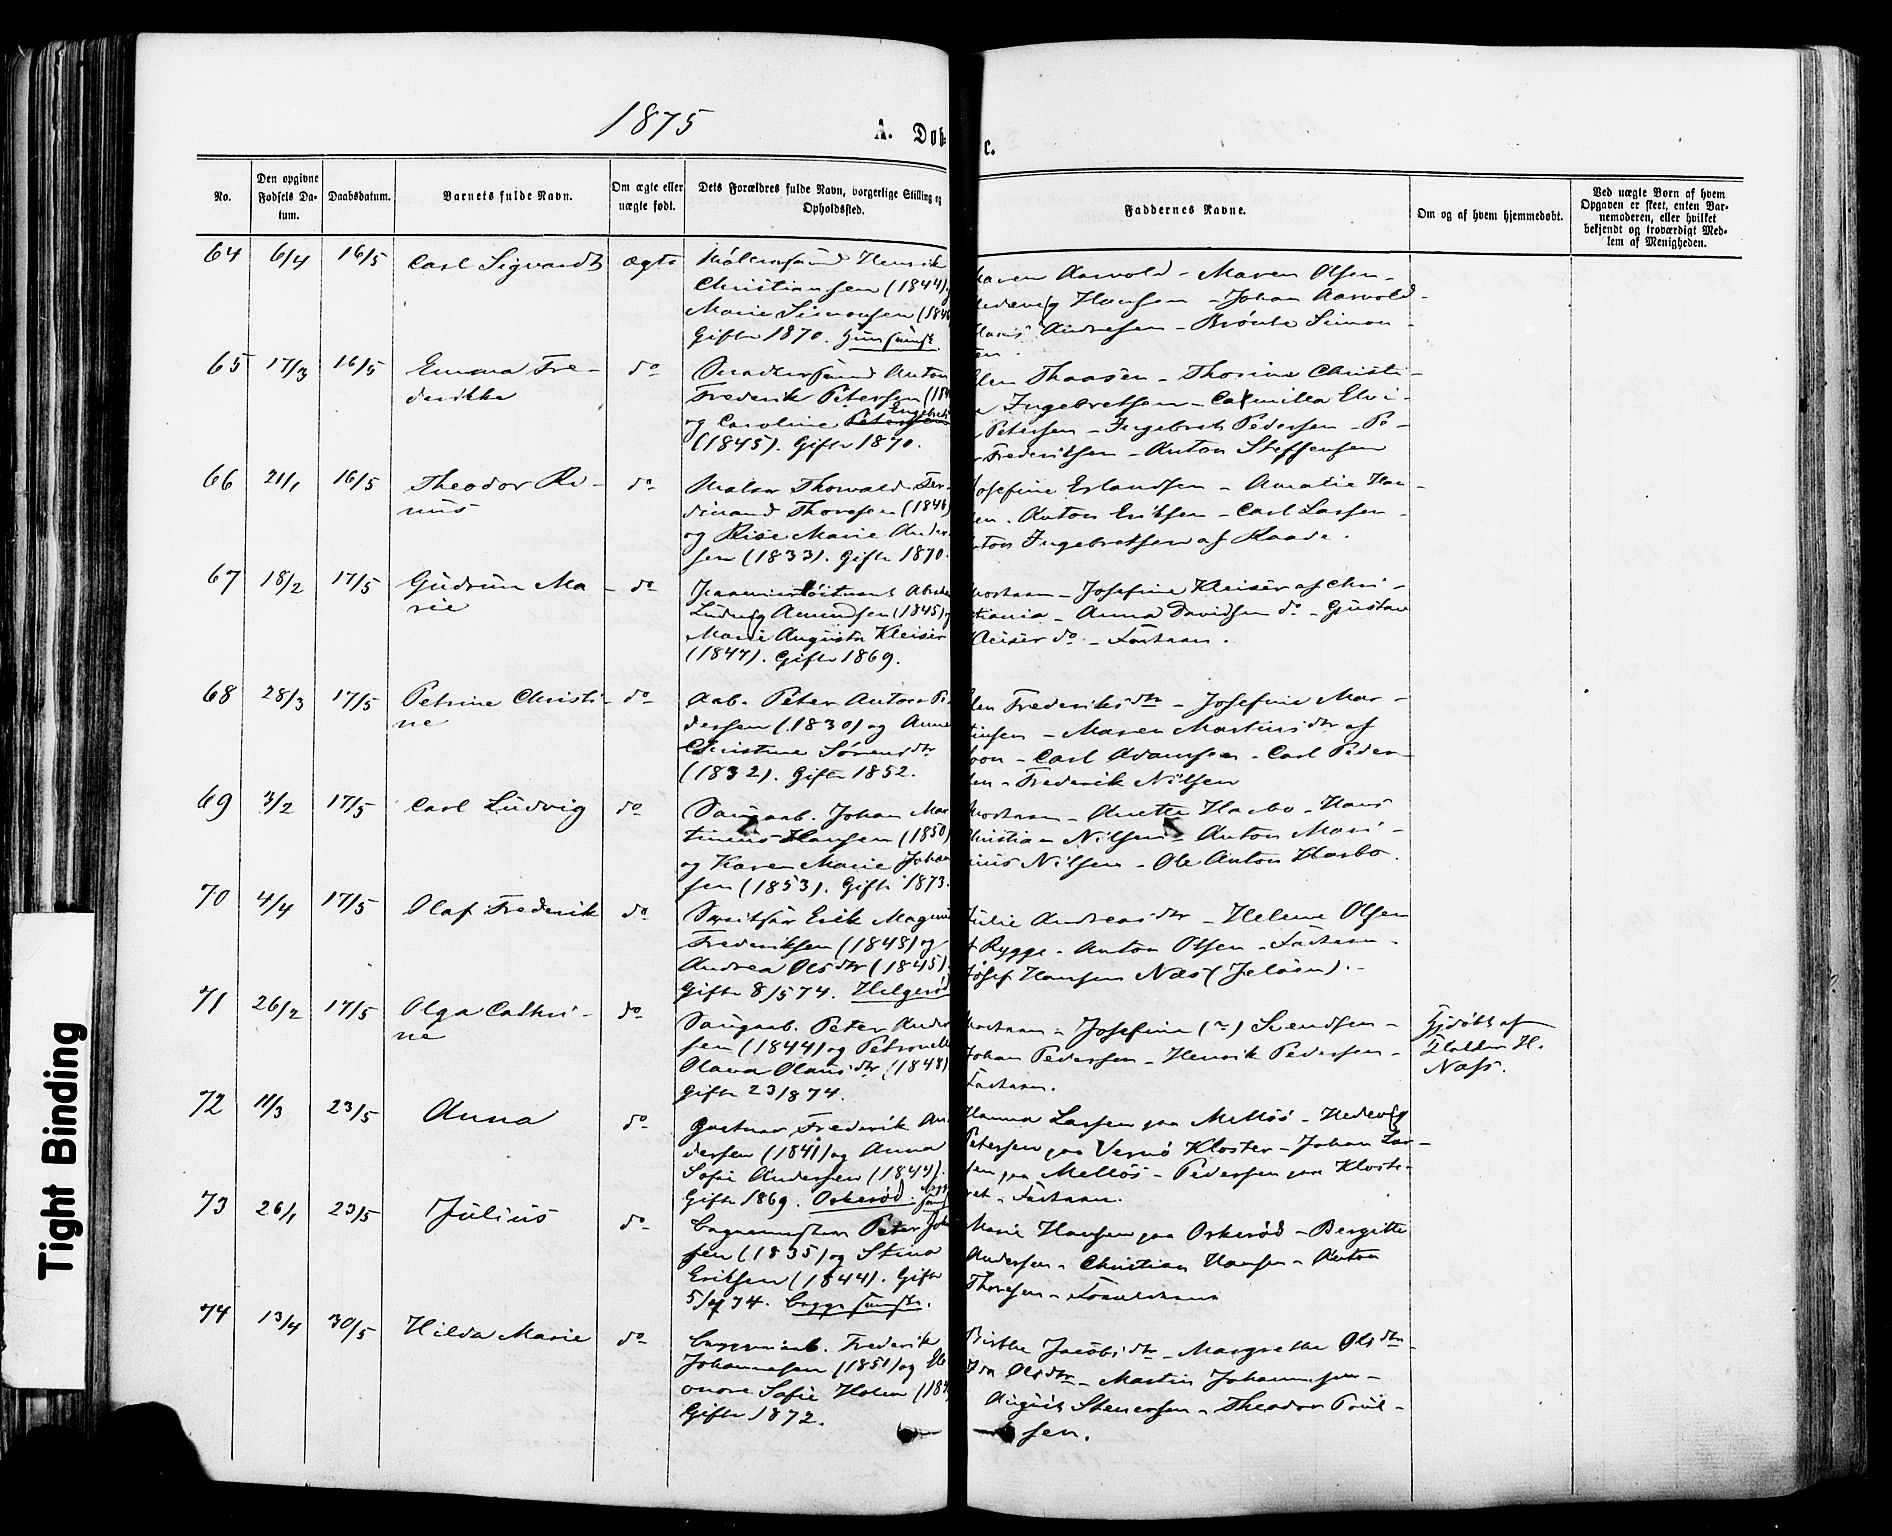 1875
A. Døb-
c.
No.
Den opgivne Fødsels Datum.
Daabsdatum.
Barnets fulde Navn.
Om ægte eller uægte født.
Dets Forældres fulde Navn, borgerlige Stilling og Opholdssted.
Faddernes Navne.
Om og af hvem hjemmedøbt.
Ved uægte Børn af hvem Opgaven er skeet, enten Barnemoderen, eller hvilket bekjendt og troværdigt Medlem af Menigheden.
64 6/4 16/5 Carl Sigvardt ægte
Henrik
Christiansen (1844)
Marie Simonsen (184
Gift 1870.
Maren Aarvold - Maren Olsen -
Hansen - Johan Aarvold -
Andresen - Simon -
sen.
65 17/3 16/5 Emma Fre-
derikke
do
Anton
Frederik Petersen (184
og Caroline Petersen
(1845). Gift 1870.
Thaasen - Thorine Christi -
Ingebretsen - Camilla Elvi -
Petersen - Ingebret Pedersen - Pe -
Frederiksen - Anton Steffensen
66 21/1 16/5 Theodor Ri-
nus
do
Thorvald Fer-
dinand Thoresen (1846)
og Marie Ander
sen (1833). Gift 1870.
Josefine Erlandsen - Amalie Han -
sen. Anton Eriksen - Carl Larsen -
Anton Ingebretsen af Raade.
67 18/2 17/5 Gudrun Ma-
rie
do
Ludvig Amundsen (1845) og
Marie Augusta Kleiser
(1847). Gift 1869.
Mostam - Josefine Kleiser af Chri -
stiania - Anna Davidsen do - Gustav
Kleiser do - Fastam.
68 28/3 17/5 Petrine Christi-
ne
do
Aab. Peter Anton Pe
dersen (1830) og Anne
Christine Sørensdtr
(1832). Gift 1852.
Frederiksdtr - Josefine Mar -
tinsen - Maren Martinsdtr af
- Carl Adamsen - Carl Peder -
sen - Frederik Nilsen
69 3/2 17/5 Carl Ludvig do
Saugaab. Johan Mar
tinius Hansen (1850)
og Karen Marie Johan
sen (1853). Gift 1873.
Mostam - Anette Harbo - Hans
Christian Nilsen - Anton Mari -
nius Nilsen - Ole Anton Harbo.
70 4/4 17/5 Olaf Frederik do
Erik Magnus
Frederiksen (1848) og
Andrea Olsdtr (1845).
Gift 8/5 74. Helgerød
Julie Andreasdtr - Helene Olsen
af Rygge - Anton Olsen - Fastam -
Josef Hansen Næs (Jeløen). -
71 26/2 17/5 Olga Cathri-
ne
do
Saugaab. Peter Ander
sen (1844) og Petronelle
Olava Olausdtr (1848)
Gift 23/8 74.
Mostam - Josefine (?) Svendsen -
Johan Pedersen - Henrik Pedersen -
Fastam.
Hjdøbt af
H.
Næss.
72 11/3 23/5 Anna do
Frederik An
dersen (1841) og Anna
Sofie Andersen (1844).
Gift 1869. Orkerød.
Hanna Larsen paa Melløs - Hedevig
Petersen paa Vernø Kloster - Johan Lar -
sen paa Melløs - Pedersen paa Kloste -
ret - Fastam.
73 26/1 23/5 Julius do
Peter Joh
sen (1835) og Stina
Eriksen (1844). Gift
74.
Marie Hansen paa Orkerød - Bergitte
Andersen - Christian Hansen - Anton
Thoresen - Forældrene
74 13/4 30/5 Hilda Marie do
Frederik
Johannesen (1851) og El
onore Sofie Holm (184
Gift 1872.
Birthe Jacobsdtr - Margrethe Olsdtr -
Olsdtr - Martin Johannesen -
August Stenersen - Theodor Poul -
sen.
Tight Binding